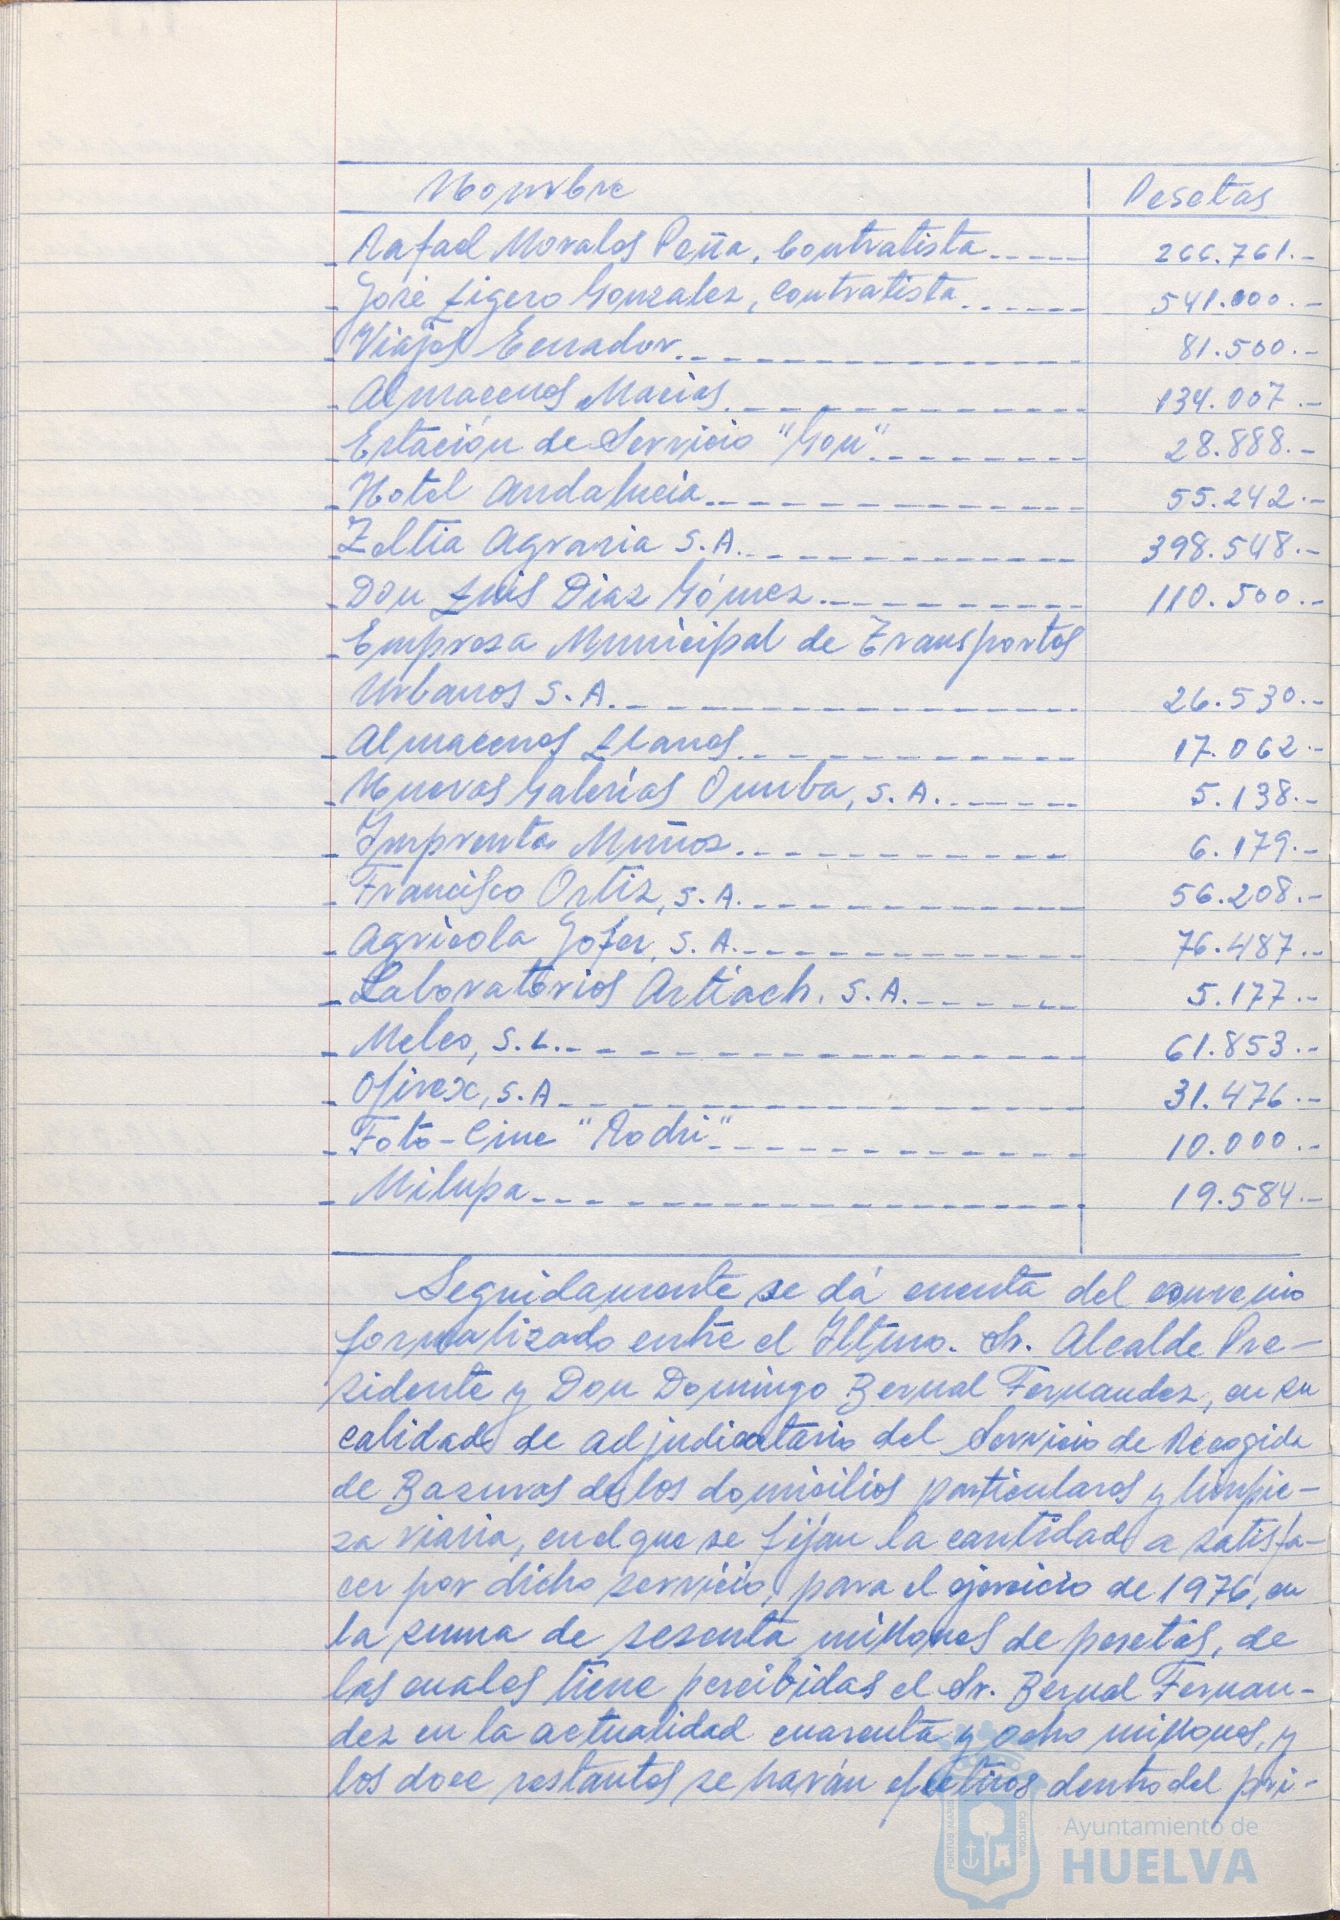 Nombre Pesetas
Rafael Morales Peña, Contratista..---- 266.761.-
José Ligero Gonzalez, Contratista..---- 541.000.-
Viajes Ecuador.--------- 81.500.-
Almacenes Macias.--------- 134.007.-
Estación de Servicio "Gon".------ 28.888.-
Hotel Andalucia.--------- 55.242.-
Zeltia Agraria S.A.--------- 398.548.-
Don Luis Diaz Gómez.--------- 110.500.-
Empresa Municipal de Transportes
Urbanos S.A.--------- 26.530.-
Almacenes Llanos.--------- 17.062.-
Nuevas Galerias Onuba, S.A.------ 5.138.-
Imprenta Muñoz.--------- 6.179.-
Francisco Ortiz, S.A.--------- 56.208.-
Agricola Gofer, S.A.--------- 76.487.-
Laboratorios Artiach. S.A.------ 5.177.-
Meleo, S.L.--------- 61.853.-
Ofirex, S.A--------- 31.476.-
Foto-Cine "Rodri"--------- 10.000.-
Milupa--------- 19.584.-
Seguidamente se dá cuenta del convenio
formalizado entre el Iltmo. Sr. Alcalde Pre-
sidente y Don Domingo Bernal Fernandez, en su
calidad de adjudicatario del Servicio de Recogida
de Basuras de los domicilios particulares y limpie-
za viaria, en el que se fijan la cantidad a satisfa-
cer por dicho servicio, para el ejercicio de 1976, en
la suma de sesenta millones de pesetas, de
las cuales tiene percibidas el Sr. Bernal Fernan-
dez en la actualidad cuarenta y ocho millones, y
los doce restantes se harán efectivos dentro del pri-
PORTUS MARIS CUSTODIA
Ayuntamiento de
HUELVA